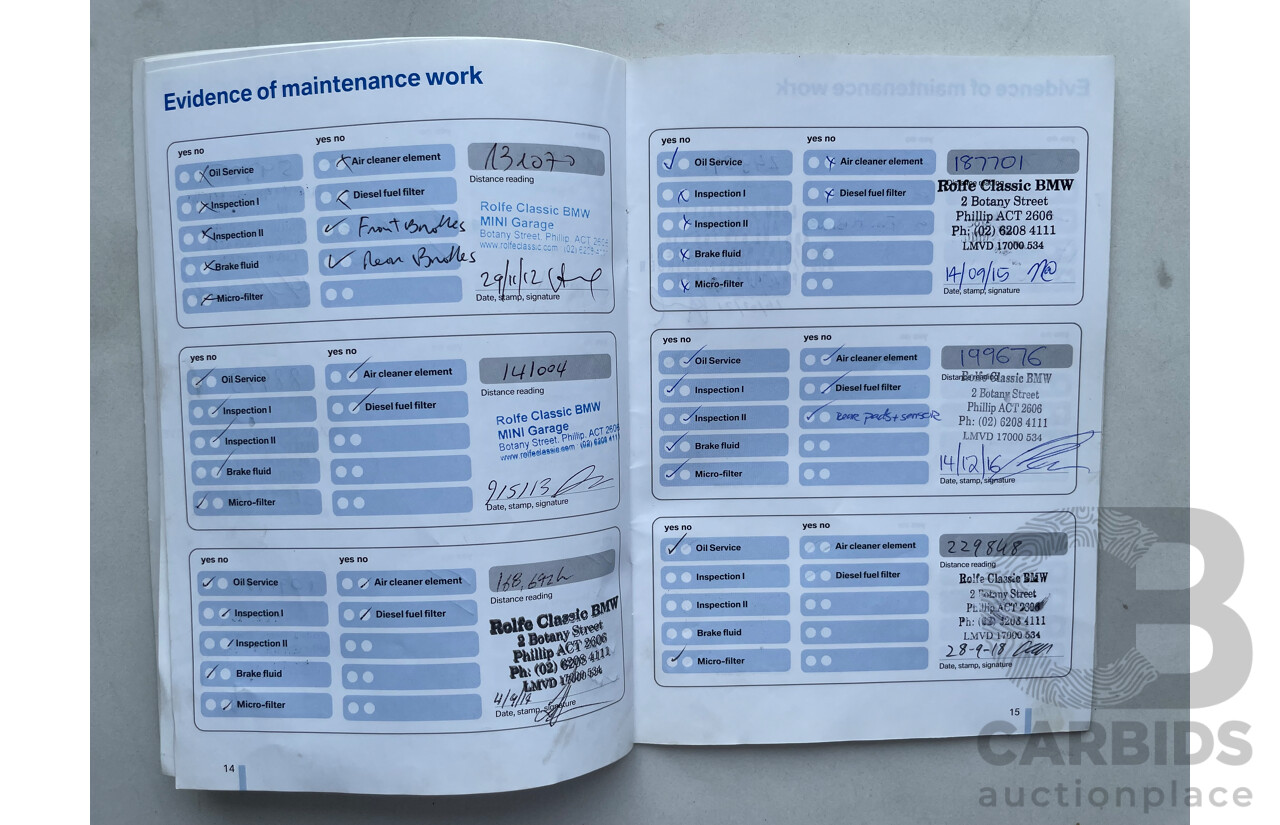 Evidence of maintenance work
yes no
yes no
Oil Service
Air cleaner element
131070
Distance reading
Inspection I
Diesel fuel filter
Rolfe Classic BMW
MINI Garage
Botany Street, Phillip, ACT 2606
www.rolfeclassic.com (02) 6208 4
Inspection II
Front Brakes
Brake fluid
Rear Brakes
29/11/12
Micro-filter
Date, stamp, signature
yes no
yes no
Oil Service
Air cleaner element
141004
Distance reading
Inspection I
Diesel fuel filter
Rolfe Classic BMW
MINI Garage
Botany Street, Phillip, ACT 2606
www.rolfeclassic.com (02) 6208 411
Inspection II
Brake fluid
9/5/13
Micro-filter
Date, stamp, signature
yes no
yes no
Oil Service
Air cleaner element
Distance reading
Inspection I
Diesel fuel filter
Rolfe Classic BMW
2 Botany Street
Phillip ACT 2606
Ph: (02) 6208 4111
LMVD 17000 534
Inspection II
Brake fluid
4/9/14
Micro-filter
Date, stamp, signature
14
yes no
yes no
Oil Service
Air cleaner element
187701
Inspection I
Diesel fuel filter
Rolfe Classic BMW
2 Botany Street
Phillip ACT 2606
Ph: (02) 6208 4111
LMVD 17000 534
Inspection II
Brake fluid
14/09/15
Micro-filter
Date, stamp, signature
yes no
yes no
Oil Service
Air cleaner element
199676
Inspection I
Diesel fuel filter
Rolfe Classic BMW
2 Botany Street
Phillip ACT 2606
Ph: (02) 6208 4111
LMVD 17000 534
Inspection II
rear pads + sensor
Brake fluid
14/12/16
Micro-filter
Date, stamp, signature
yes no
yes no
Oil Service
Air cleaner element
229848
Distance reading
Inspection I
Diesel fuel filter
Rolfe Classic BMW
2 Botany Street
Phillip ACT 2606
Ph: (02) 6208 4111
LMVD 17000 534
Inspection II
Brake fluid
28-9-18
Micro-filter
Date, stamp, signature
15
CARBIDS
auctionplace